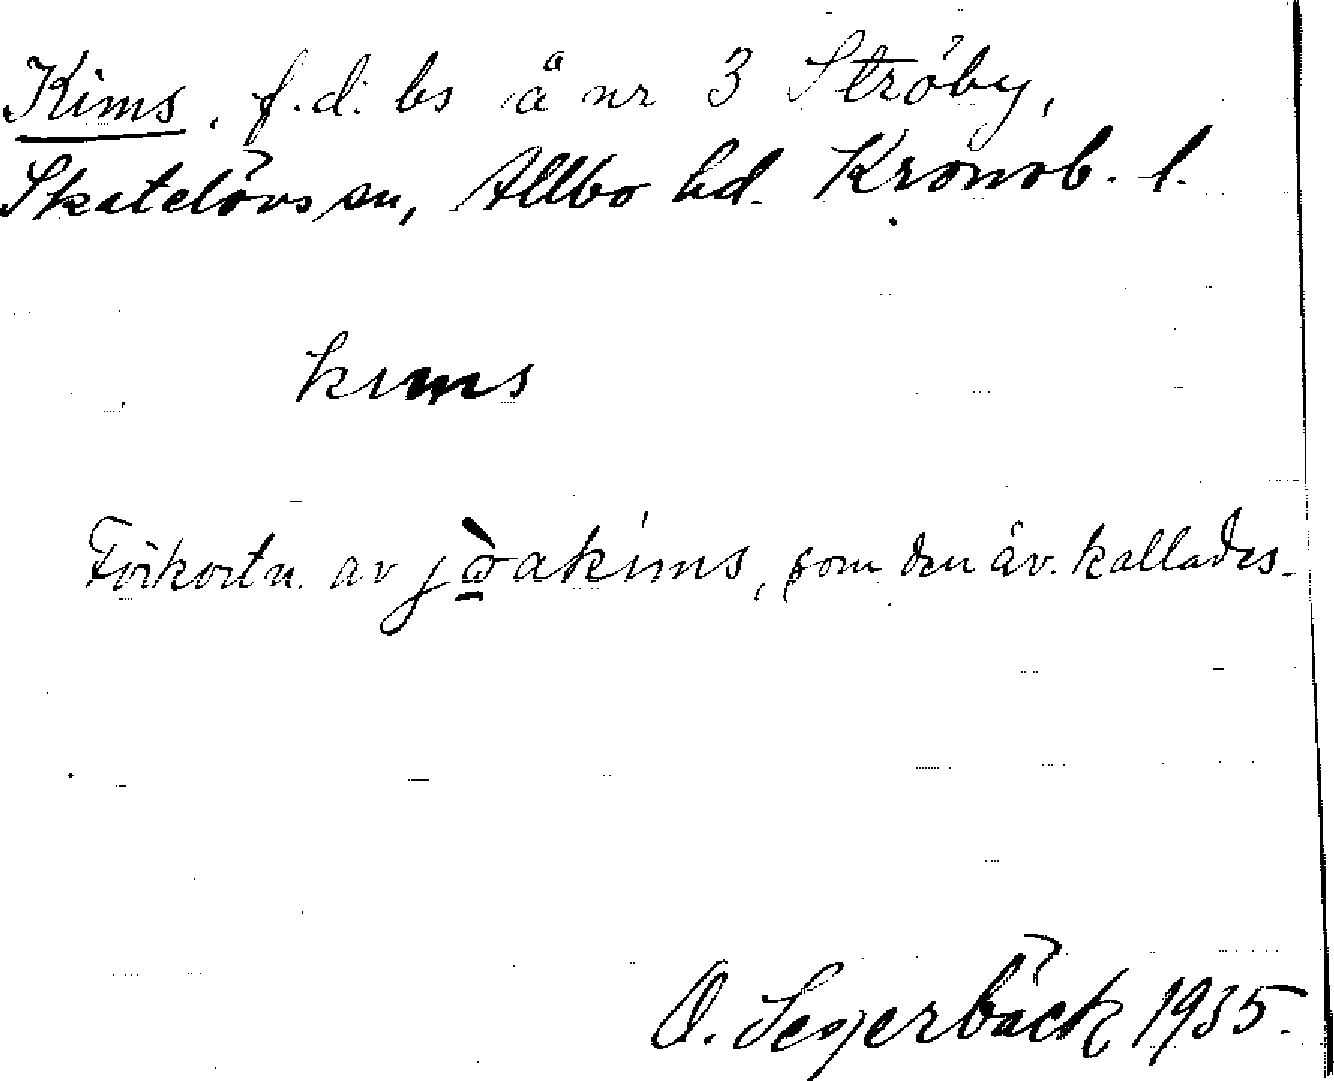 Kims, f.d. bs å nr 3 Ströby,
Skatelövs sn, Allbo hd. Kronob. l.
kıms
Förkortn. av jòakims, som den äv. kallades.
O. Segerbäck 1935.